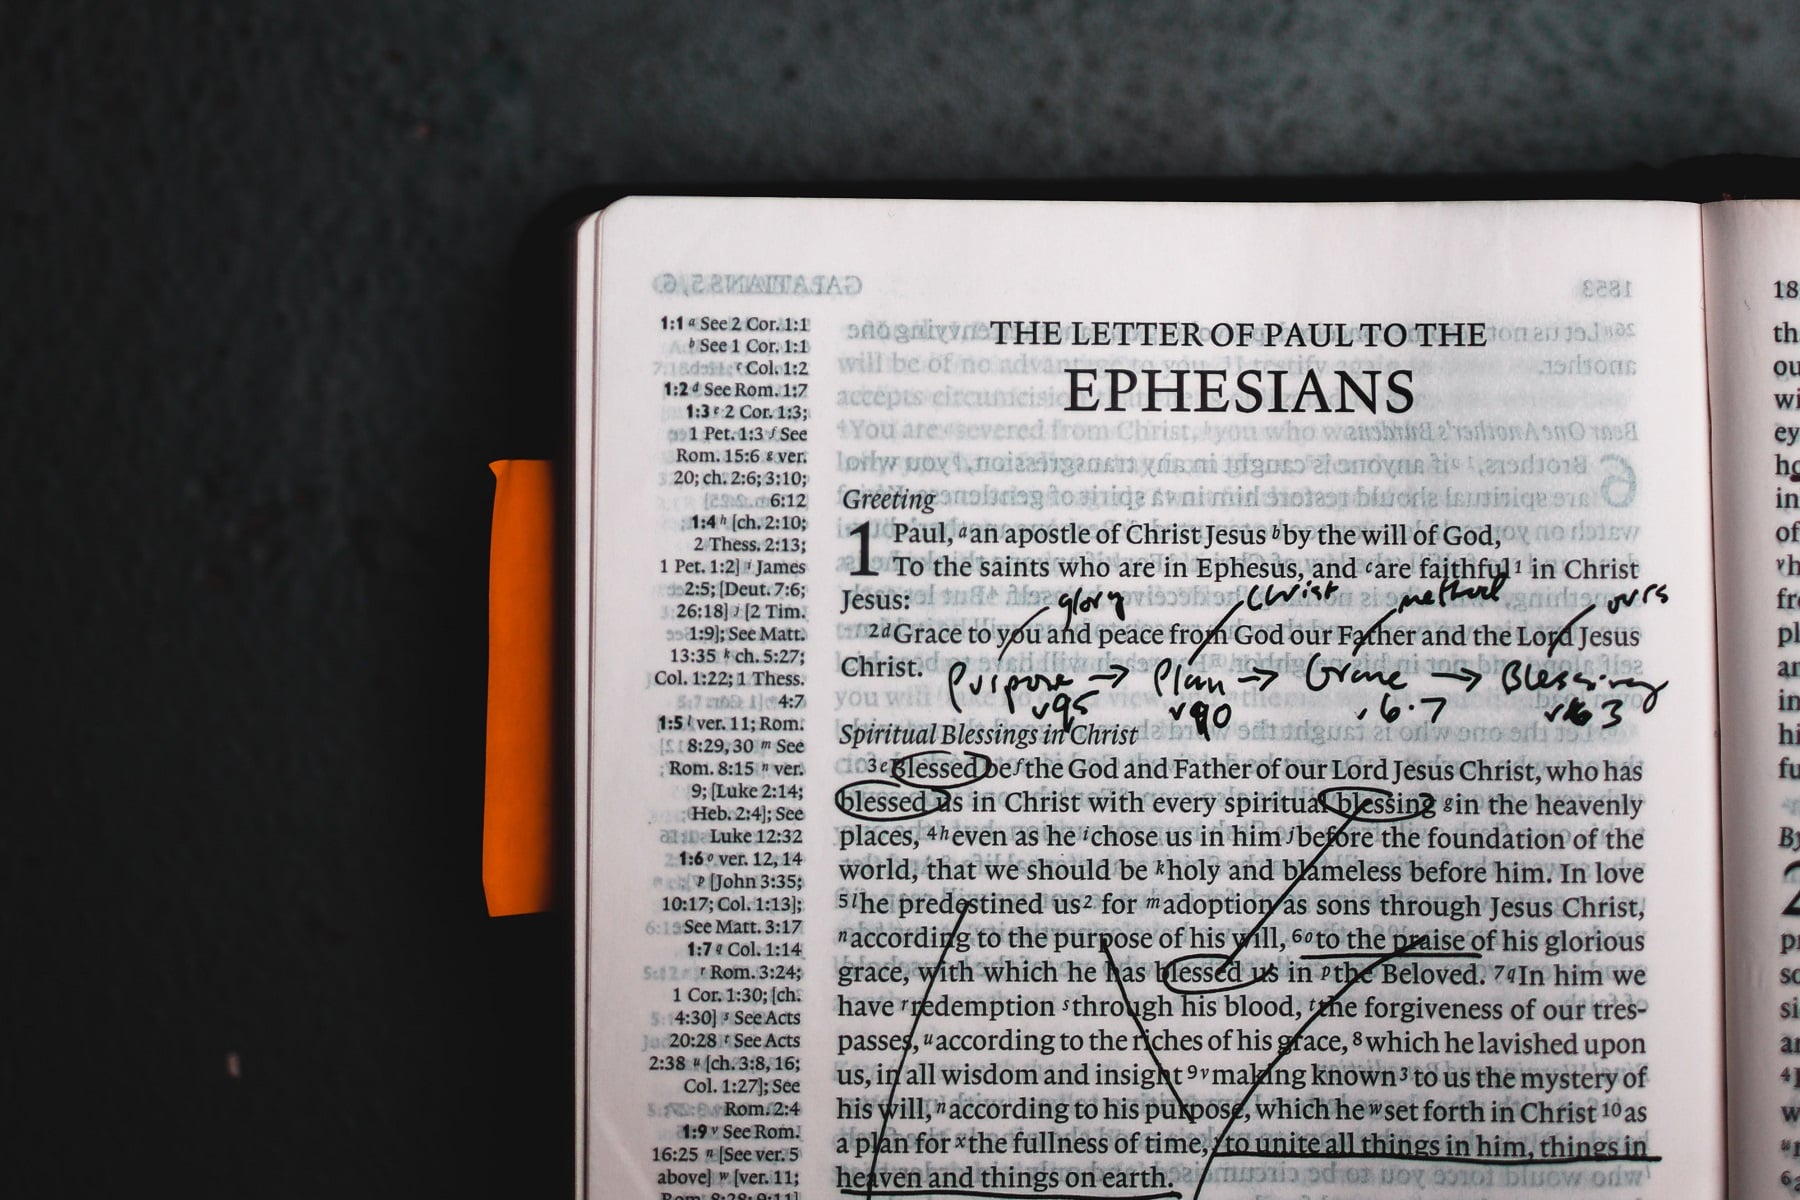 THE LETTER OF PAUL TO THE
EPHESIANS
1:1 a See 2 Cor. 1:1
b See 1 Cor. 1:1
c Col. 1:2
1:2 d See Rom. 1:7
1:3 e 2 Cor. 1:3;
1 Pet. 1:3 f See
Rom. 15:6 g ver.
20; ch. 2:6; 3:10;
6:12
1:4 h [ch. 2:10;
2 Thess. 2:13;
1 Pet. 1:2] i James
2:5; [Deut. 7:6;
26:18] j [2 Tim.
1:9]; See Matt.
13:35 k ch. 5:27;
Col. 1:22; 1 Thess.
4:7
1:5 l ver. 11; Rom.
8:29, 30 m See
Rom. 8:15 n ver.
9; [Luke 2:14;
Heb. 2:4]; See
Luke 12:32
1:6 o ver. 12, 14
p [John 3:35;
10:17; Col. 1:13];
See Matt. 3:17
1:7 q Col. 1:14
r Rom. 3:24;
1 Cor. 1:30; [ch.
4:30] s See Acts
20:28 t See Acts
2:38 u [ch. 3:8, 16;
Col. 1:27]; See
Rom. 2:4
1:9 v See Rom.
16:25 n [See ver. 5
above] w [ver. 11;
Rom. 8:28; 9:11]
Greeting
1 Paul, a an apostle of Christ Jesus b by the will of God,
To the saints who are in Ephesus, and c are faithful 1 in Christ
Jesus:
glory Christ method ours
2 d Grace to you and peace from God our Father and the Lord Jesus
Christ.
Purpose → Plan → Grace → Blessing
v 9 5 v 9 10 v 6·7 v 3
Spiritual Blessings in Christ
3 e Blessed be f the God and Father of our Lord Jesus Christ, who has
blessed us in Christ with every spiritual blessing g in the heavenly
places, 4 h even as he i chose us in him j before the foundation of the
world, that we should be k holy and blameless before him. In love
5 l he predestined us 2 for m adoption as sons through Jesus Christ,
n according to the purpose of his will, 6 o to the praise of his glorious
grace, with which he has blessed us in p the Beloved. 7 q In him we
have r redemption s through his blood, t the forgiveness of our tres-
passes, u according to the riches of his grace, 8 which he lavished upon
us, in all wisdom and insight 9 v making known 3 to us the mystery of
his will, n according to his purpose, which he w set forth in Christ 10 as
a plan for x the fullness of time, y to unite all things in him, things in
heaven and things on earth.